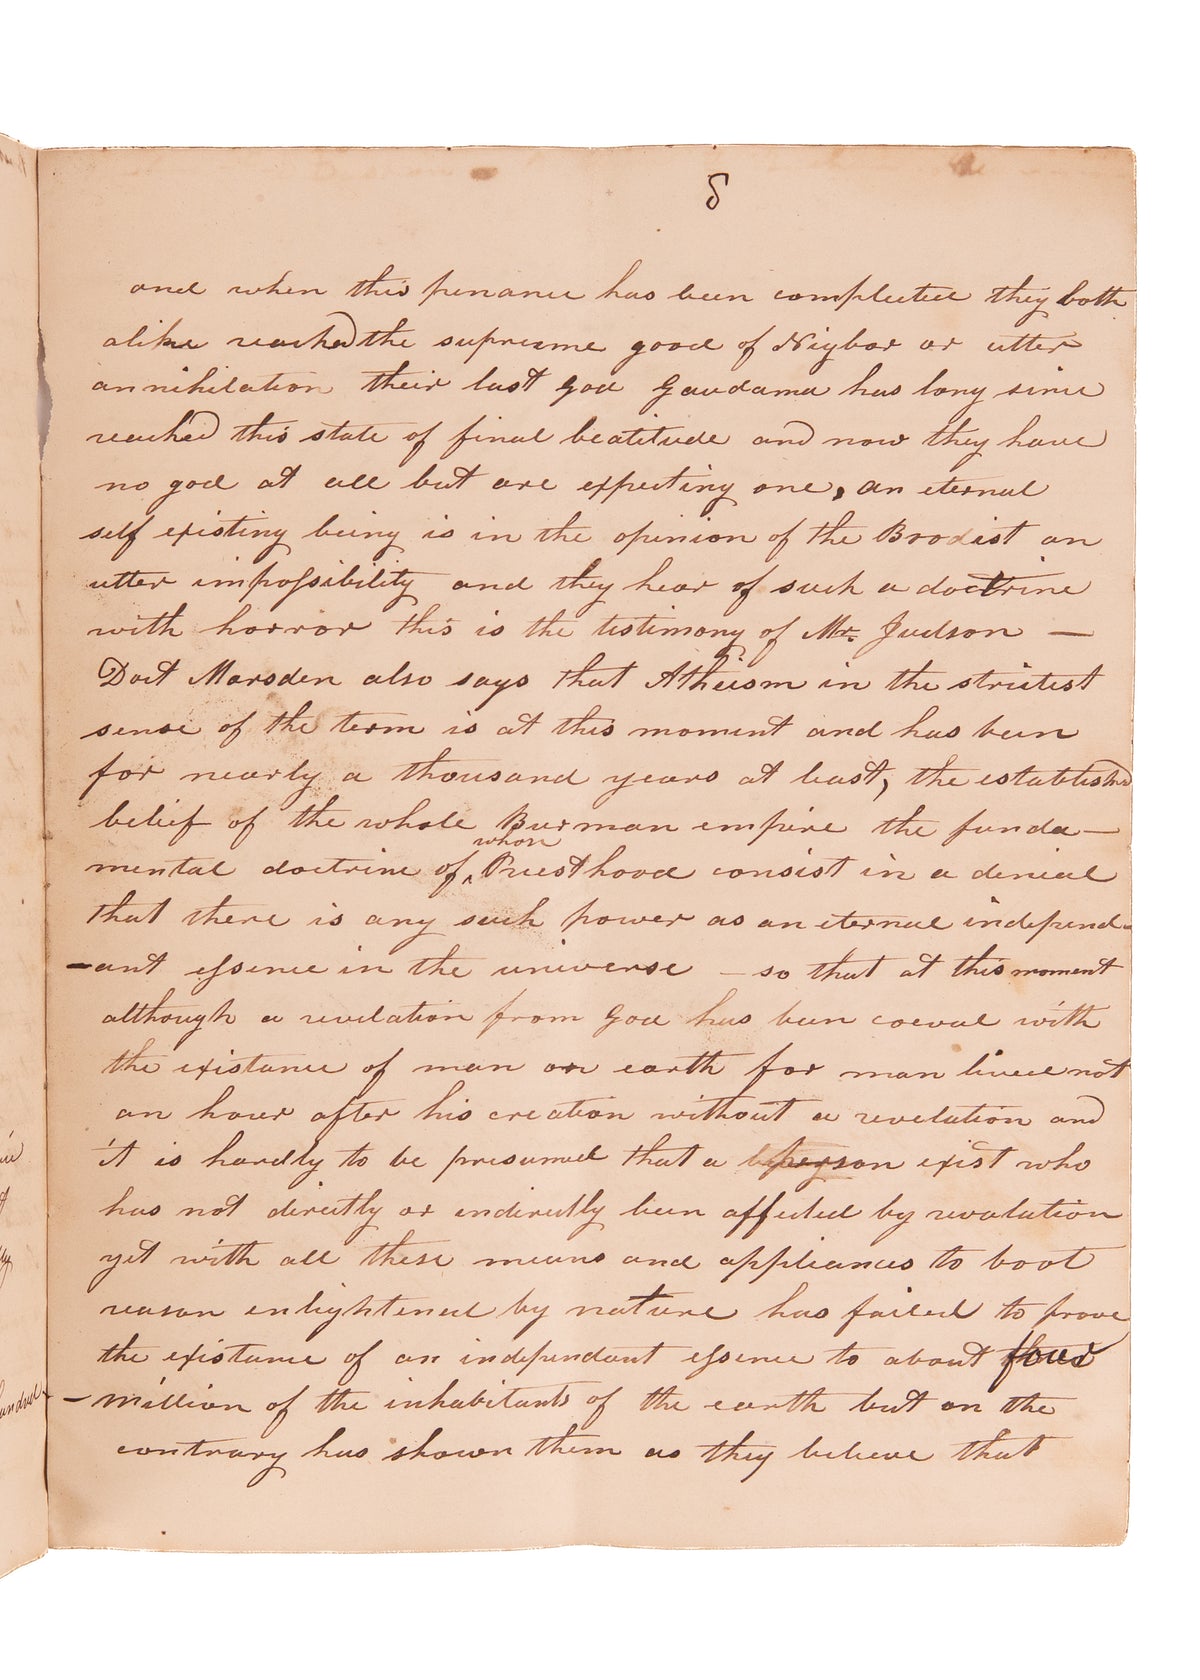 8
and when this penance has been complected they both
alike reached the supreme good of Nigbar or utter
annihilation their last God Gaudama has long since
reached this state of final beatitude and now they have
no god at all but are expecting one, an eternal
self existing being is in the opinion of the Brodist an
utter impossibility and they hear of such a doctrine
with horror this is the testimony of Mr. Judson —
Doct Marsden also says that Atheism in the strictest
sense of the term is at this moment and has been
for nearly a thousand years at least, the established
belief of the whole Burman empire the funda—
mental doctrine of whose Priesthood consist in a denial
that there is any such power as an eternal independ-
-ant essence in the universe — so that at this moment
although a revelation from God has been coeval with
the existance of man on earth for man lived not
an hour after his creation without a revelation and
it is hardly to be presumed that a person exist who
has not directly or indirectly been affected by revalation
yet with all these means and appliances to boot
reason enlightened by nature has failed to prove
the existance of an independant essence to about four
—million of the inhabitants of the earth but on the
contrary has shown them as they believe that